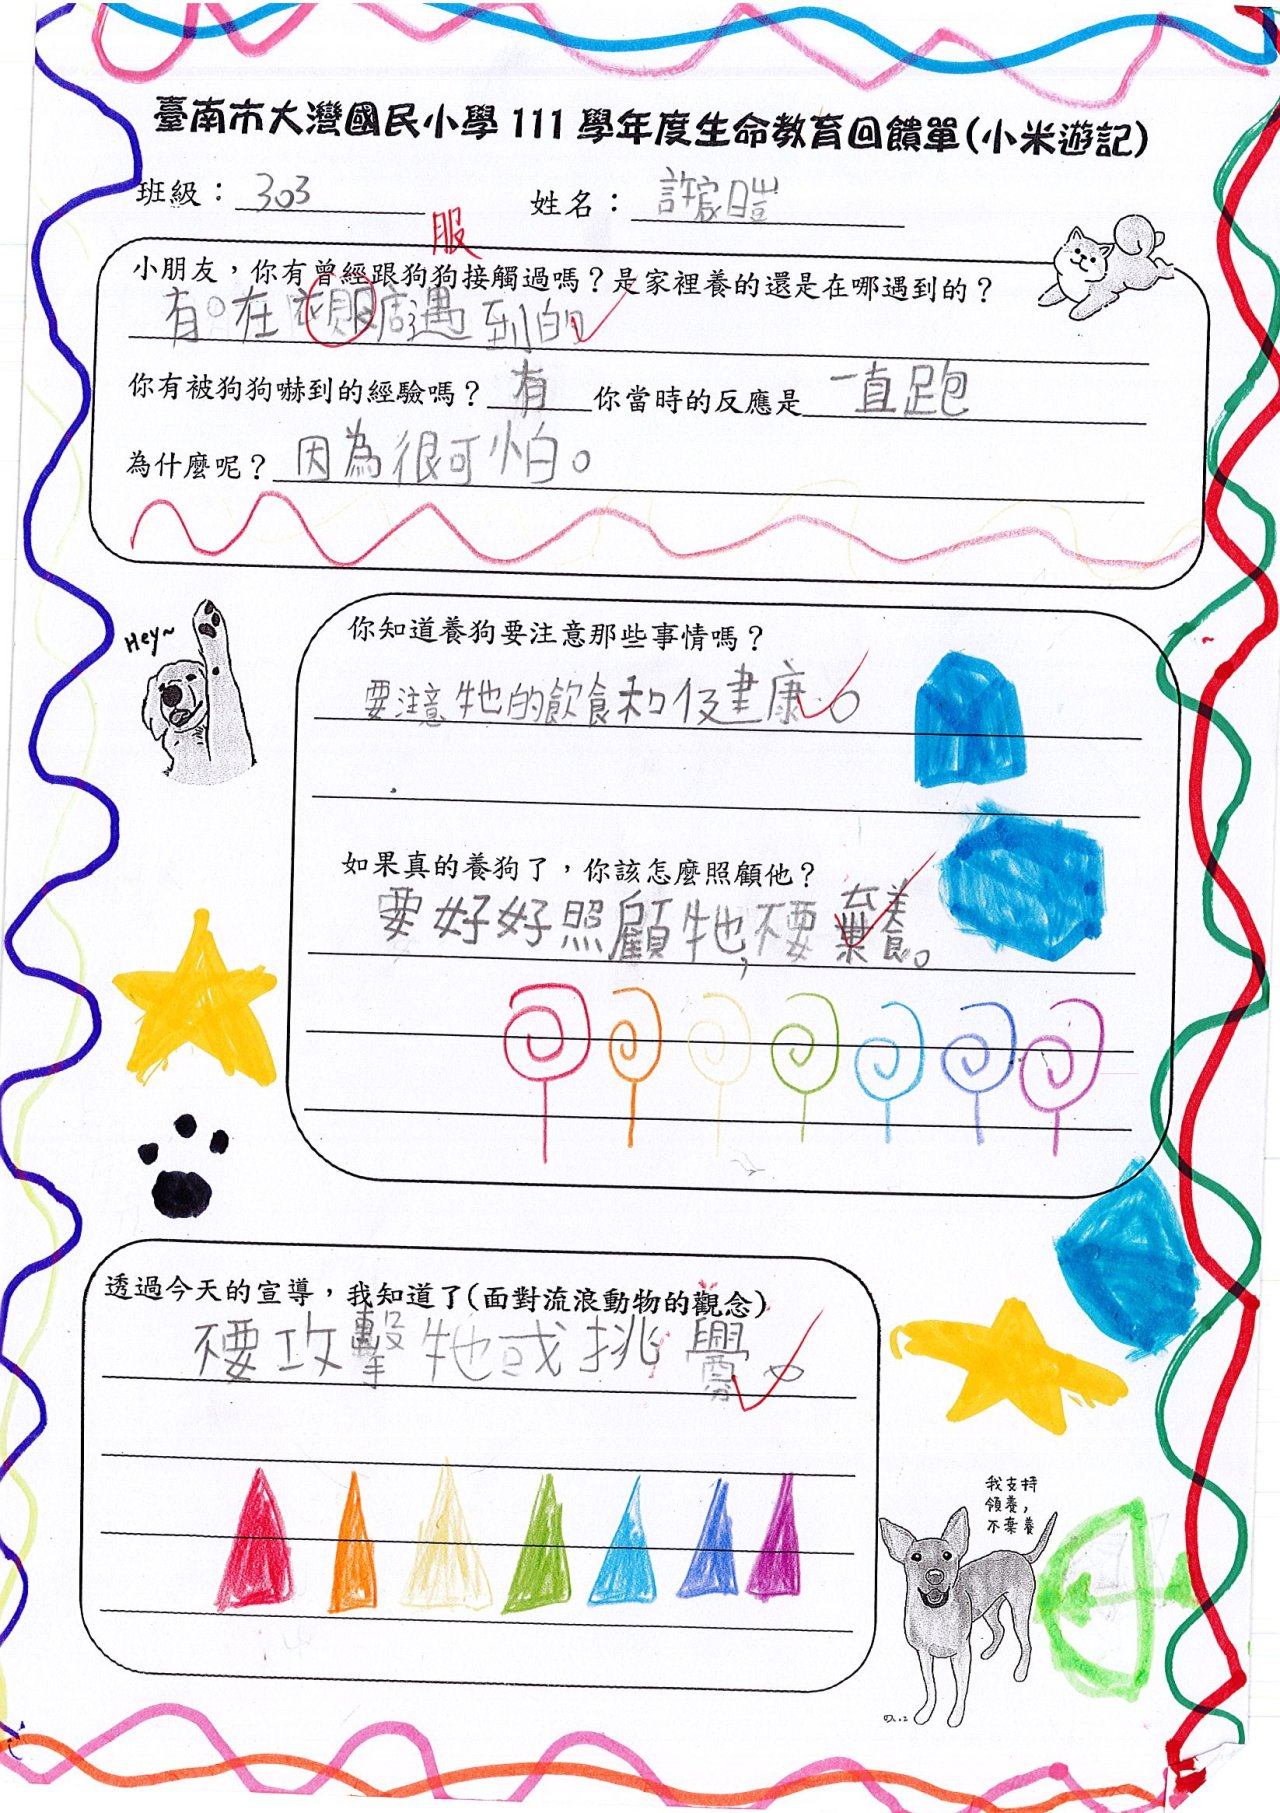 臺南市大灣國民小學 111 學年度生命教育回饋單(小米遊記)
班級：303 姓名：許宸暟
服
小朋友，你有曾經跟狗狗接觸過嗎？是家裡養的還是在哪遇到的？
有。在衣店遇到的
你有被狗狗嚇到的經驗嗎？有 你當時的反應是一直跑
為什麼呢？因為很可怕。
Hey~
你知道養狗要注意那些事情嗎？
要注意牠的飲食和健康。
如果真的養狗了，你該怎麼照顧他？
要好好照顧牠，不要棄養。
透過今天的宣導，我知道了(面對流浪動物的觀念)
不要攻擊牠或挑釁。
我支持
領養，
不棄養